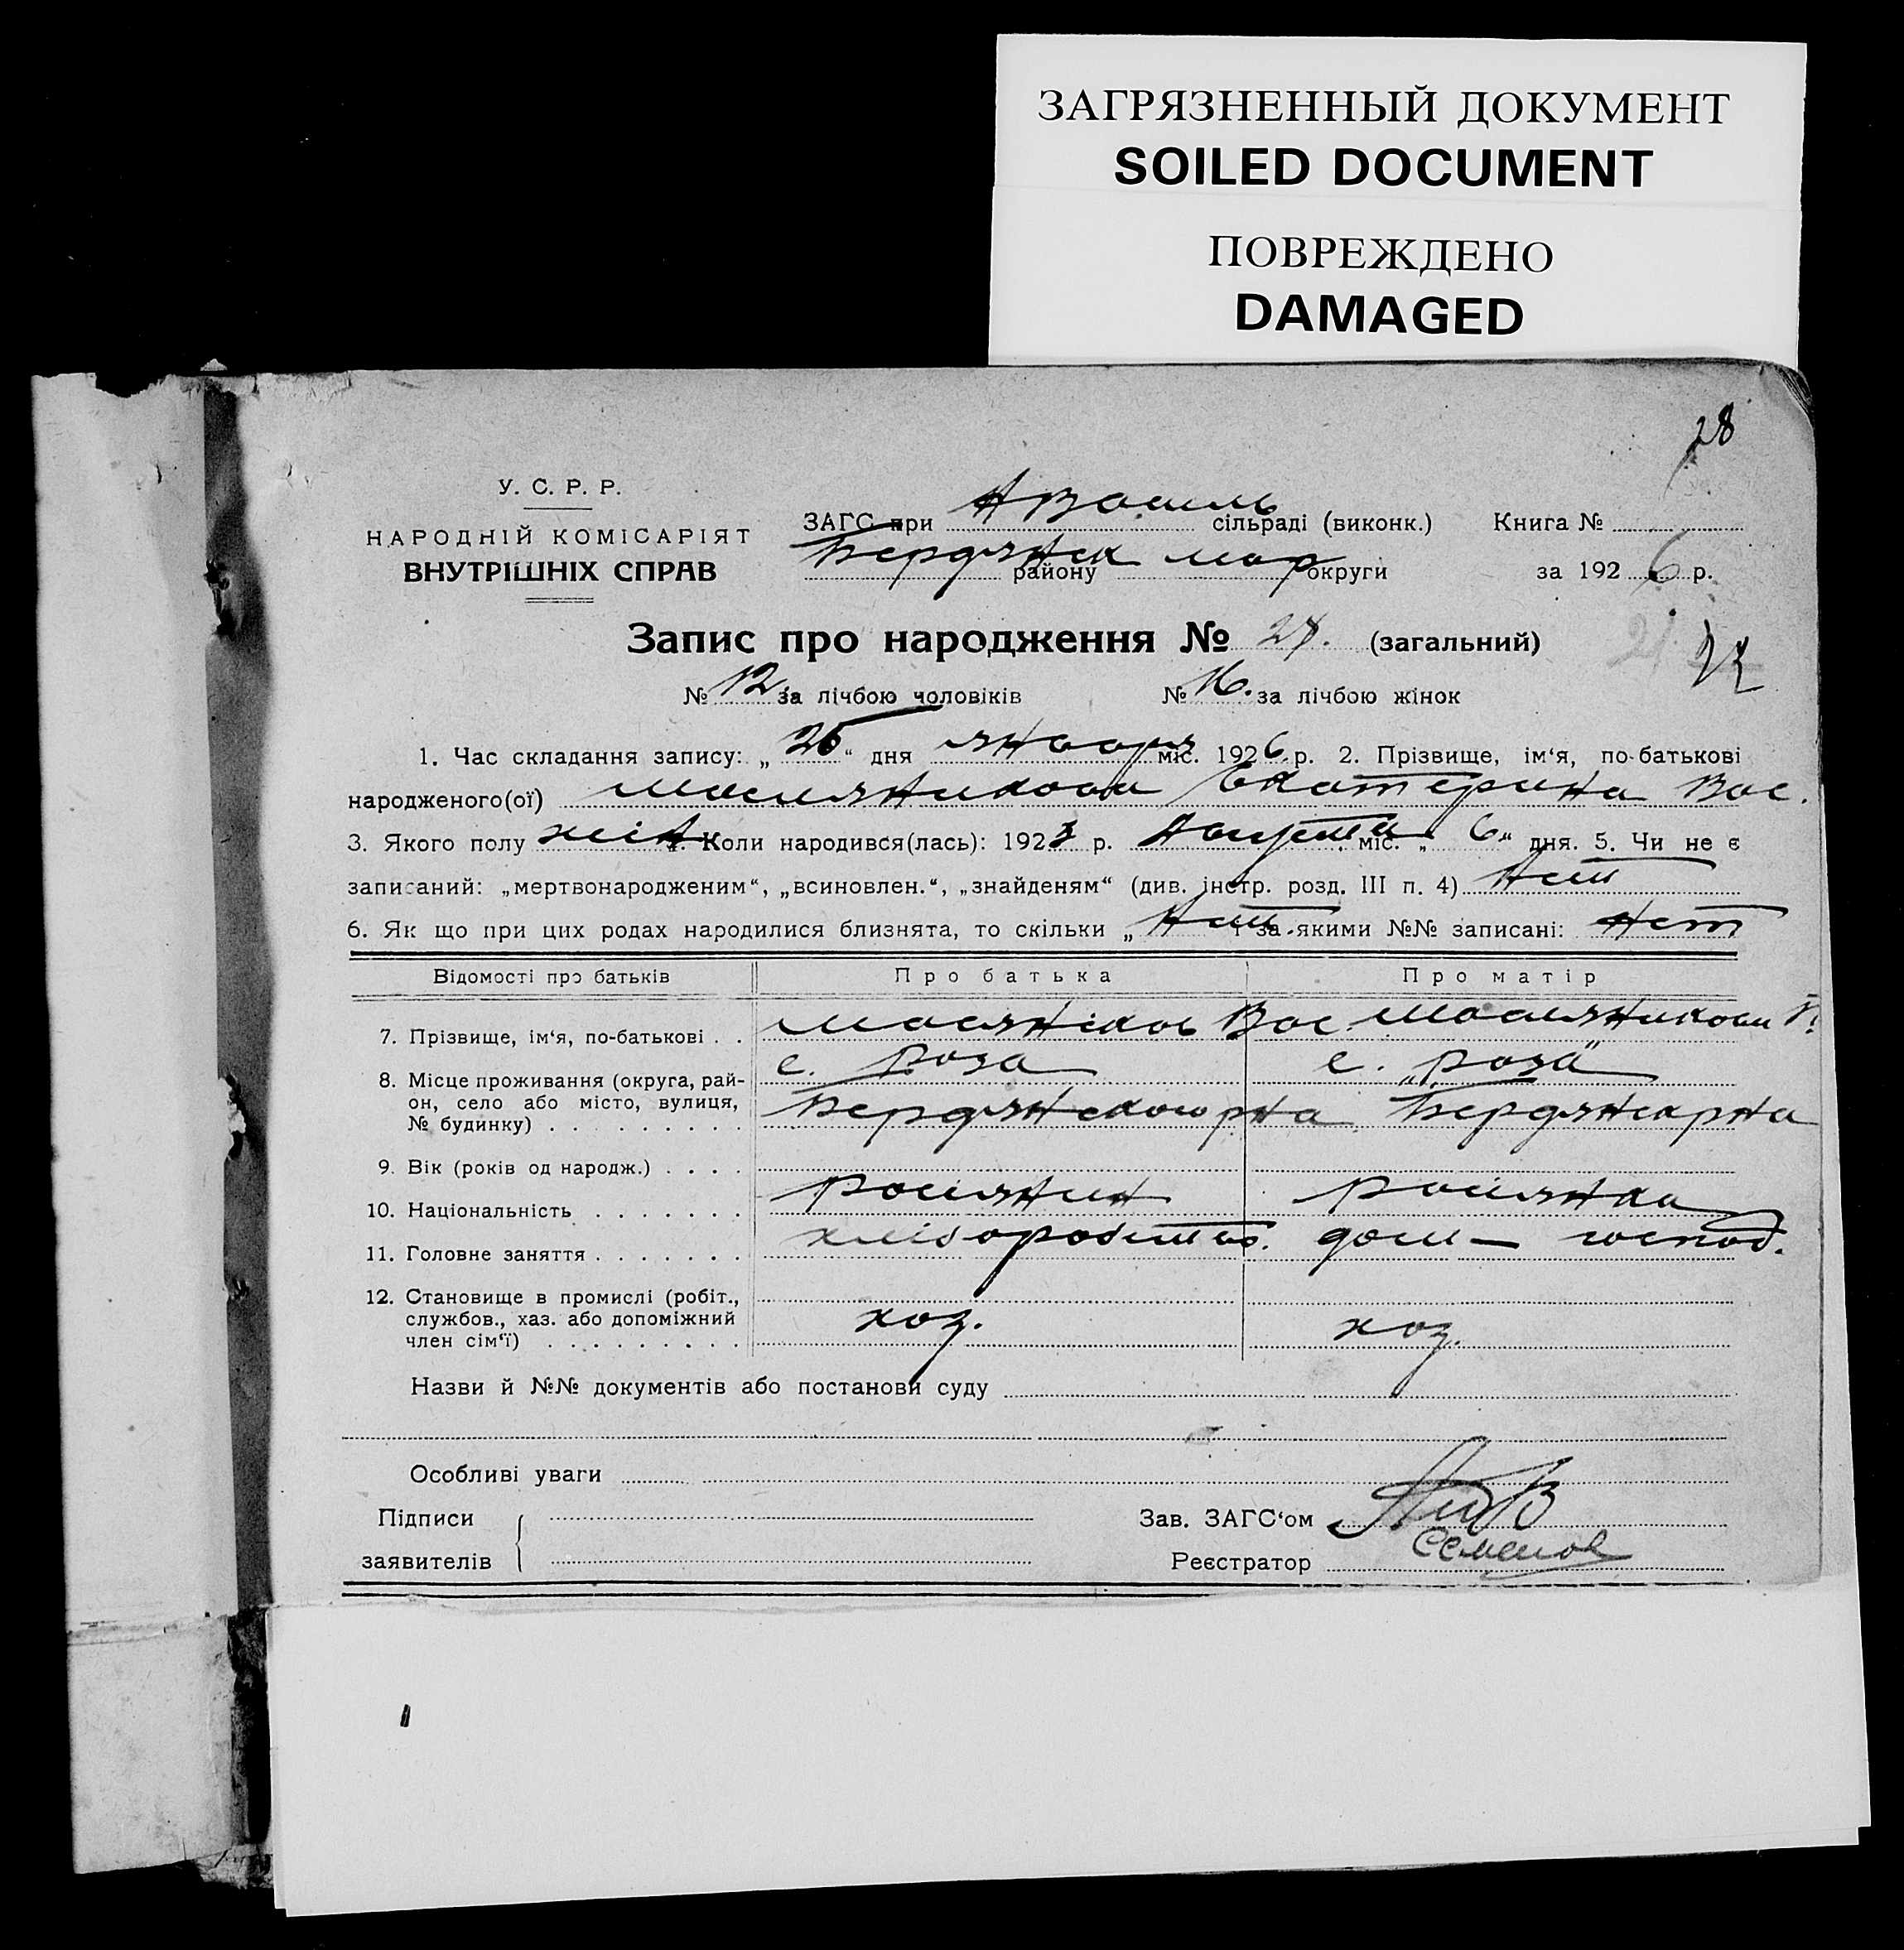 ЗАГРЯЗНЕННЫЙ ДОКУМЕНТ
SOILED DOCUMENT
ПОВРЕЖДЕНО
DAMAGED
28
У. С. Р. Р.
НАРОДНІЙ КОМІСАРІЯТ
ВНУТРІШНІХ СПРАВ
ЗАГС при сільраді (виконк.) Книга №
Бердянск району мар округи за 1926 р.
Запис про народження № 28. (загальний)
№ 12 за лічбою чоловіків № 16. за лічбою жінок
1. Час складання запису: „ 26 “ дня января міс. 1926 р. 2. Прізвище, ім‘я, по-батькові
народженого(ої) Масляникова Екатерина Вас.
3. Якого полу жін 4. Коли народився(лась): 1923 р. Августа міс. „ 6 “ дня. 5. Чи не є
записаний: „мертвонародженим“, „всиновлен.“, „знайденям“ (див. інстр. розд. III п. 4) Нет
6. Як що при цих родах народилися близнята, то скільки „ Нет і за якими №№ записані: Нет
Відомості про батьків Про батька Про матір
7. Прізвище, ім‘я, по-батькові . . Масляніков Вас. Масляникова
8. Місце проживання (округа, рай- с. Роза с. „Роза“
он, село або місто, вулиця,
№ будинку) . . . . . . . . . Бердянского рна Бердянск рна
9. Вік (років од народж.) . . . .
10. Національність . . . . . . . росіянин росіянка
11. Головне заняття . . . . . . . хліборобство. дом — господ.
12. Становище в промислі (робіт.,
службов., хаз. або допоміжний
член сім‘ї) . . . . . . . . . хоз. хоз.
Назви й №№ документів або постанови суду
Особливі уваги
Підписи
заявителів
Зав. ЗАГС‘ом
Реєстратор